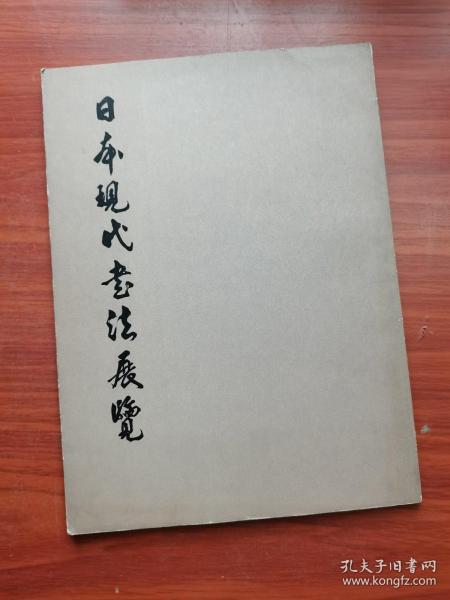 日本现代书法展覧
孔夫子旧书网
www.kongfz.com